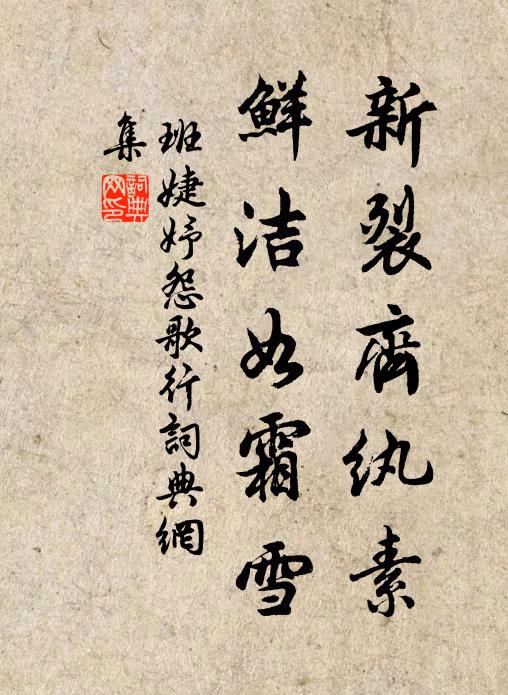 新裂齊紈素
鮮洁如霜雪
班婕妤怨歌行詞典網
集
詞典网印